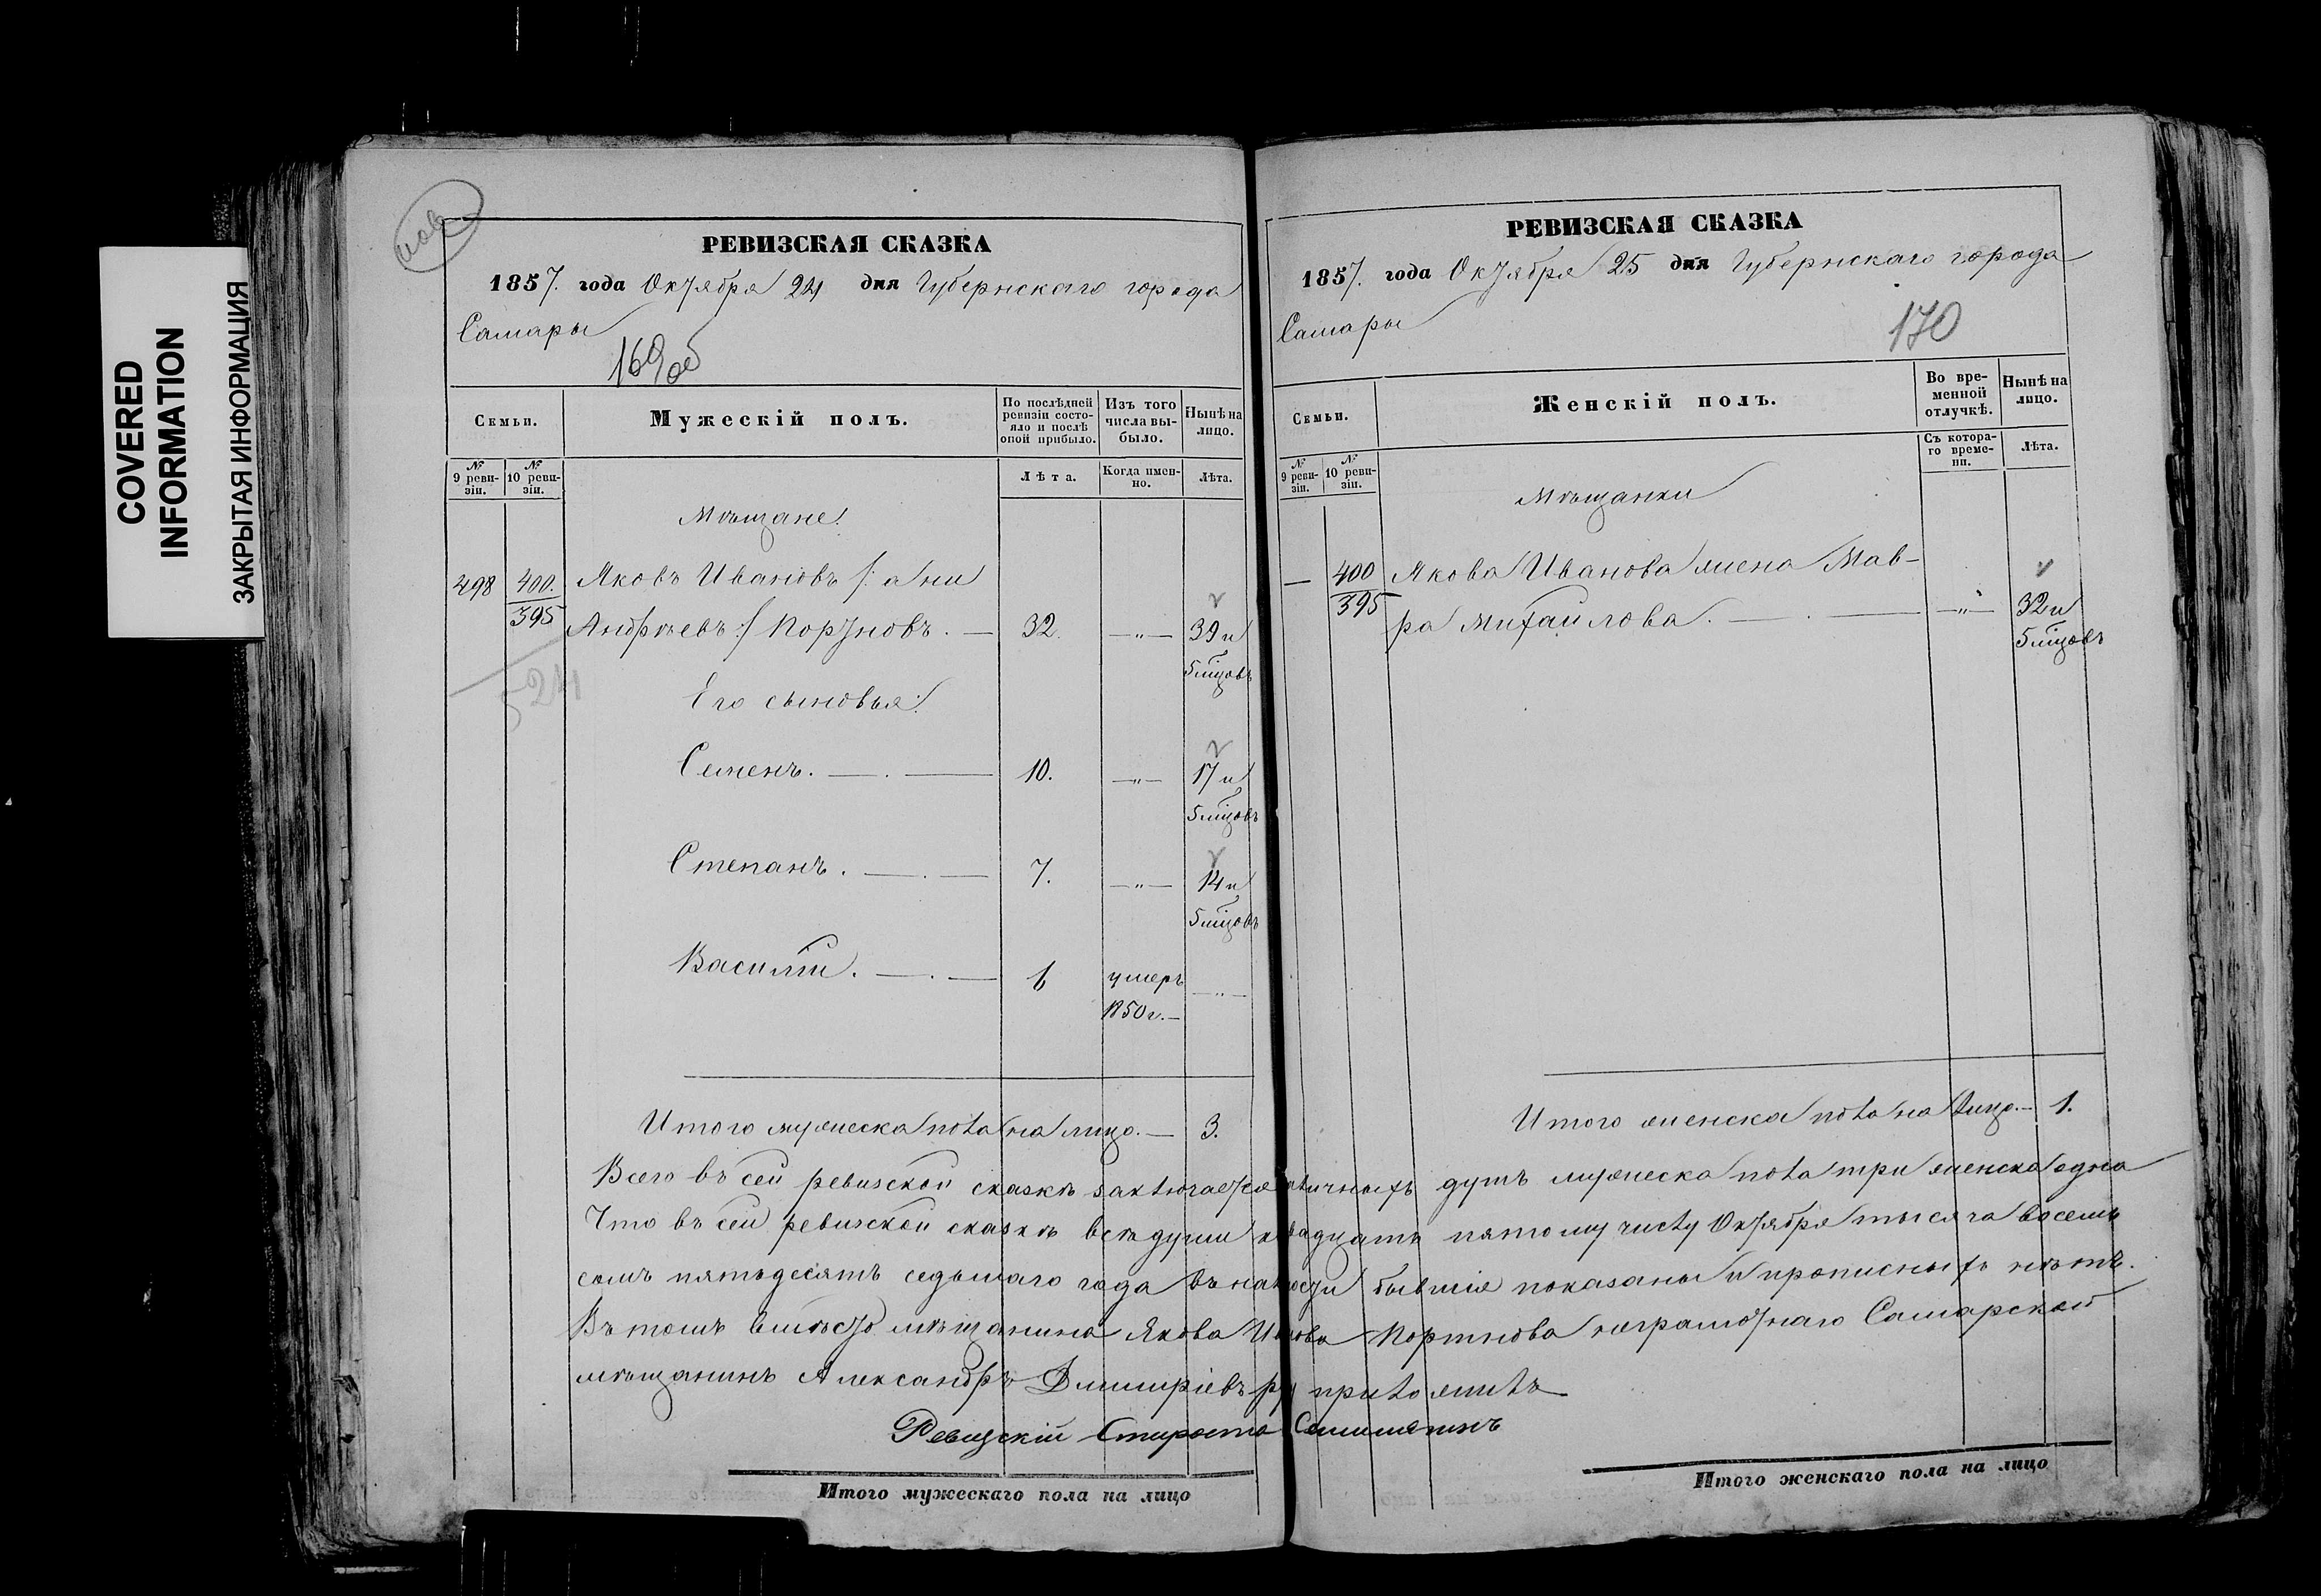 COVERED
INFORMATION
ЗАКРЫТАЯ ИНФОРМАЦИЯ
РЕВИЗСКАЯ СКАЗКА
1857. года Октября 24 дня Губернскаго города
Самары
169об
Семьи.
Мужескій полъ.
По послѣдней ревизіи состояло и послѣ оной прибыло.
Изъ того числа выбыло.
Нынѣ на лицо.
№ 9 ревизіи.
№ 10 ревизіи.
Лѣта.
Когда именно.
Лѣта.
Мѣщане:
498 400. Яковъ Ивановъ /: а не
395 Андрѣевъ :/ Портновъ. — 32. —„— 39 и
5 мѣцовъ
524
Его сыновья:
Семенъ. —.— 10. —„— 17 и
5 мѣцовъ
Степанъ. —.— 7. —„— 14 и
5 мѣцовъ
Василій. —.— 1 умеръ —„—
1850 г. —
Итого мужеска пола на лицо. — 3.
РЕВИЗСКАЯ СКАЗКА
1857. года Октября 25 дня Губернскаго города
Самары
170
Семьи.
Женскій полъ.
Во временной отлучкѣ.
Нынѣ на лицо.
№ 9 ревизіи.
№ 10 ревизіи.
Съ котораго времени.
Лѣта.
Мѣщанки
— 400 Якова Иванова жена Мав-
395 ра Михайлова. —.— —„— 32 и
5 мѣцовъ
Итого женска пола на лицо. — 1.
Всего въ сей ревизской сказкѣ заключается наличныхъ душъ мужеска пола три женска одна
Что въ сей ревизской сказкѣ всѣ души к двадцать пятому числу Октября тысяча восемь
сомъ пятьдесятъ седьмаго года въ налицости бывшіе показаны и прописныхъ нѣтъ.
Въ томъ вмѣсто мѣщанина Якова Иванова Портнова неграмотнаго Самарской
мѣщанинъ Александръ Дмитріевъ руку приложилъ
Ревизскій Староста
Итого мужескаго пола на лицо
Итого женскаго пола на лицо